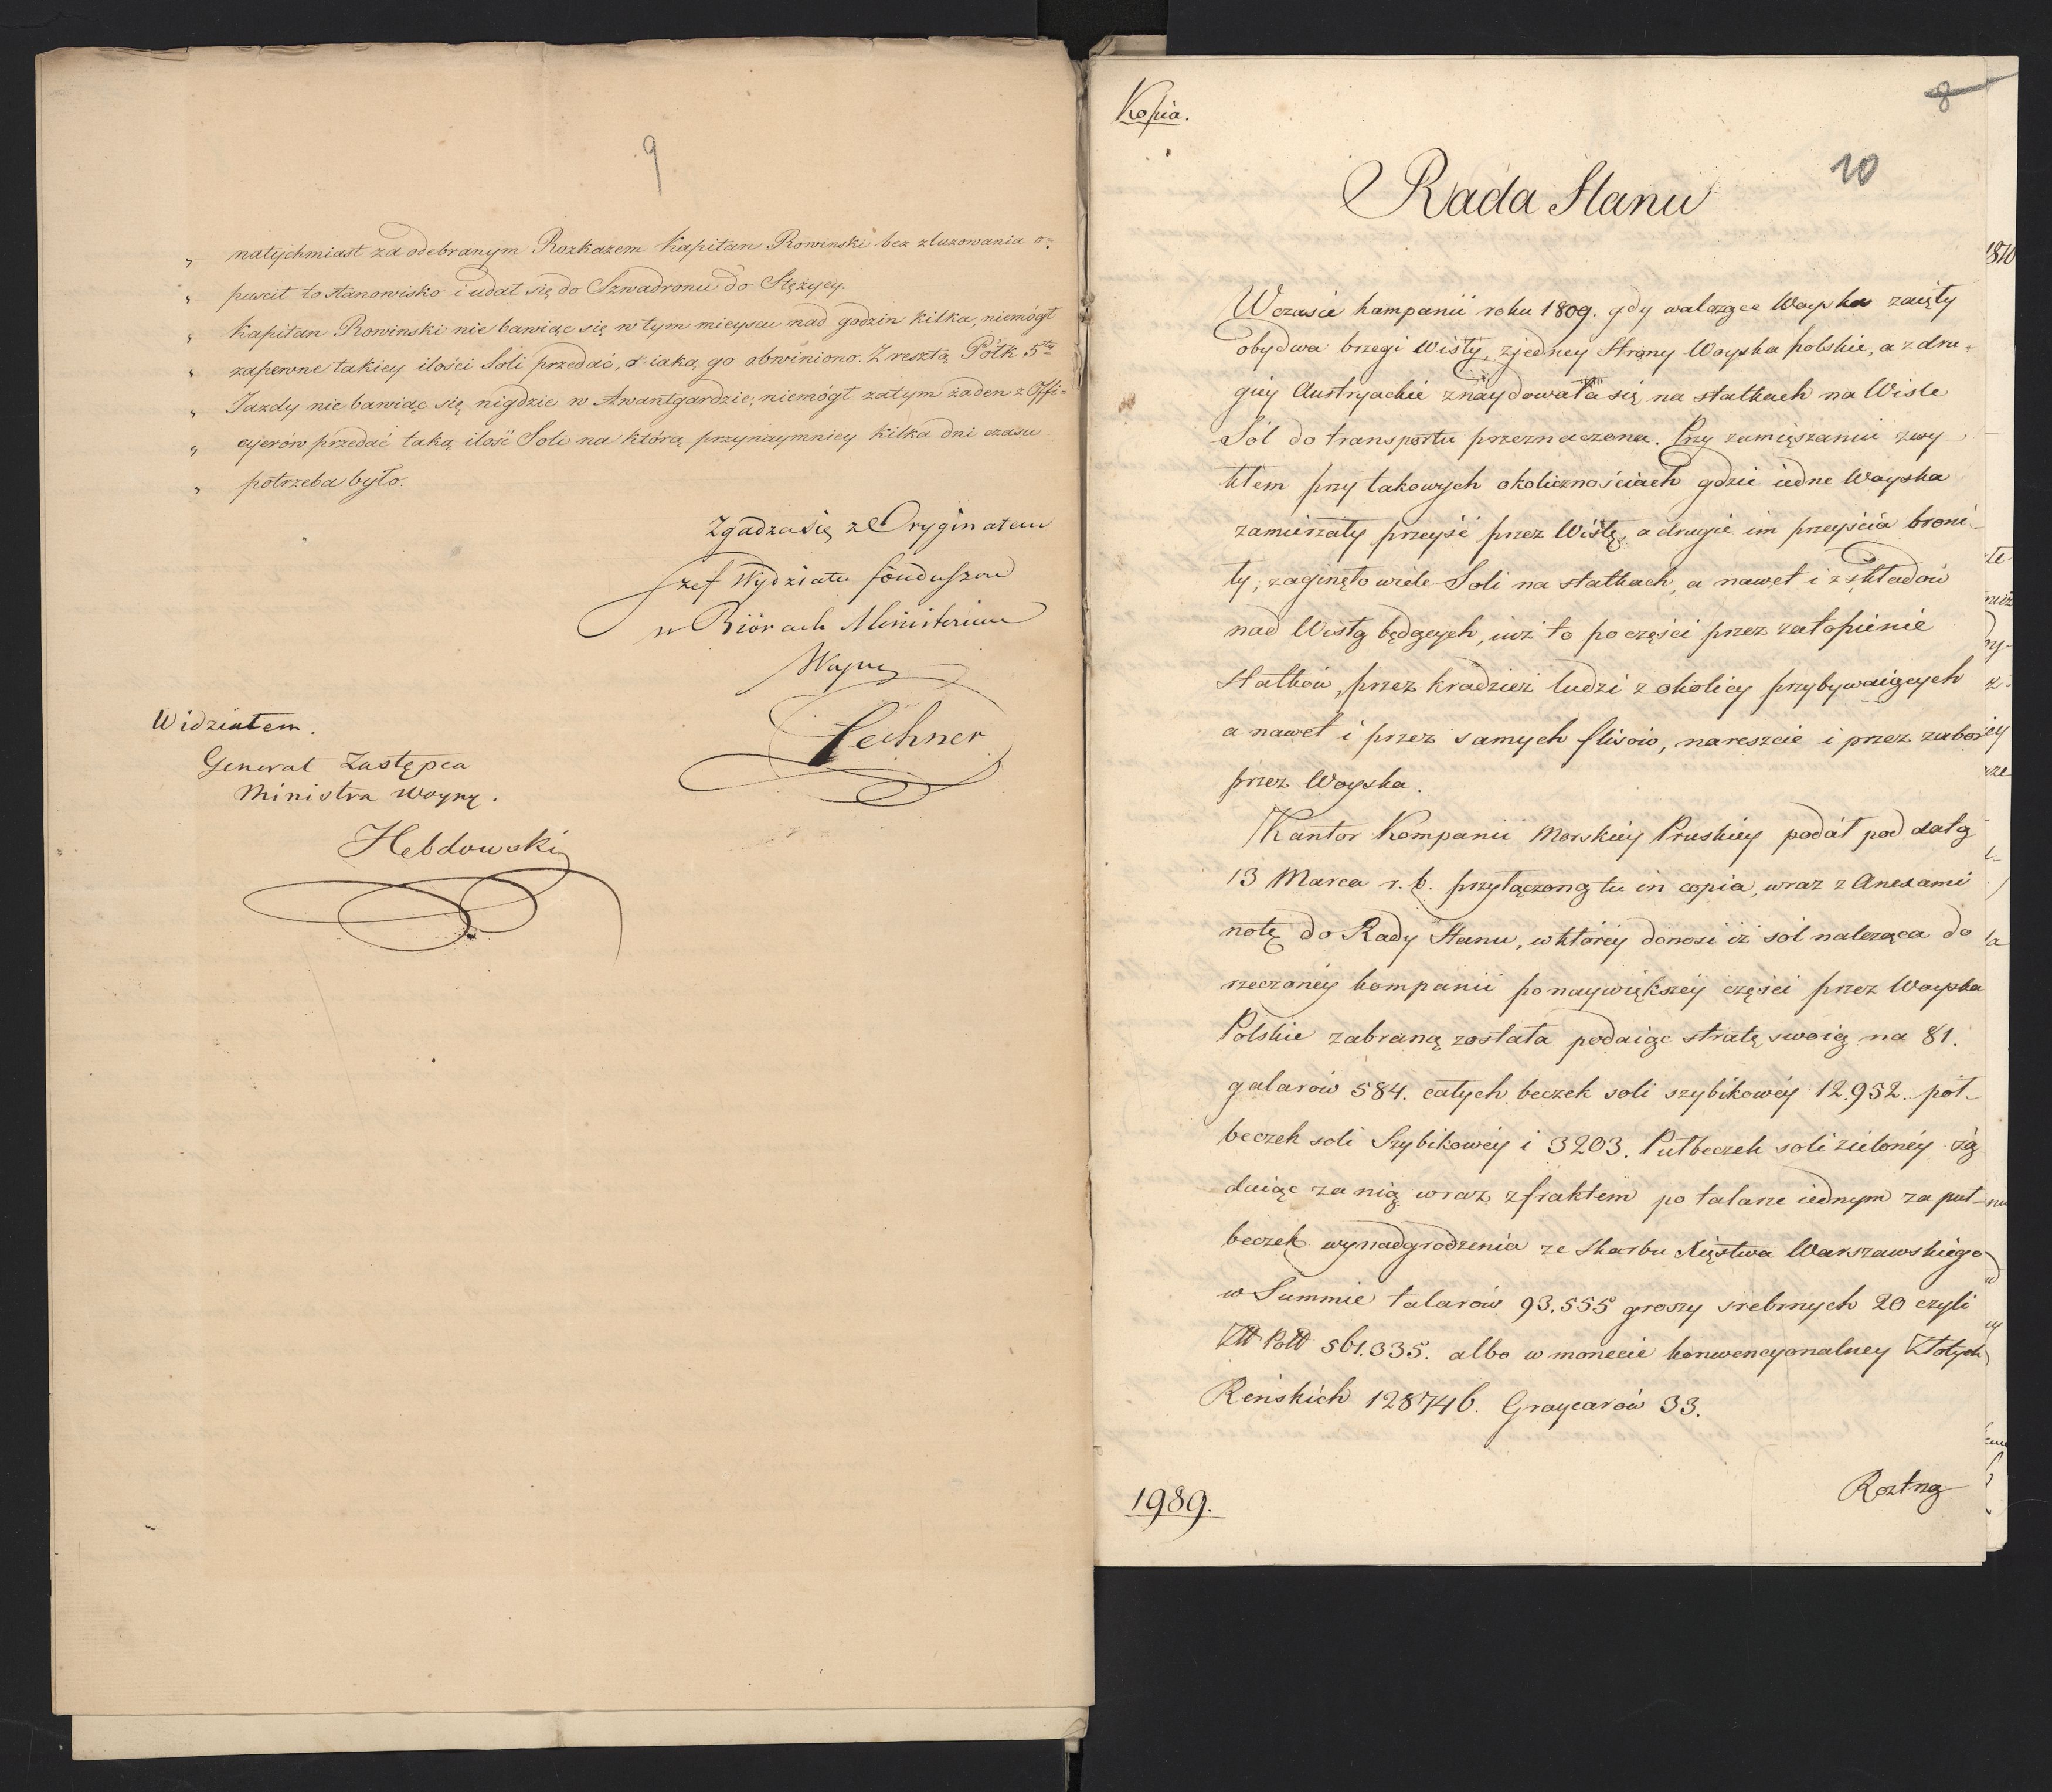 9
„ natychmiast za odebranym Rozkazem Kapitan Rowinski bez zluzowania o=
„ puscił to stanowisko i udał się do Szwadronu do Stężycy.
„ Kapitan Rowinski nie bawiąc się w tym mieyscu nad godzin kilka, niemógł
„ zapewne takiey ilości Soli przedać, o iaką go obwiniono. Z resztą Półk 5ty
„ Jazdy nie bawiąc się nigdzie w Awantgardzie, niemógł zatym żaden z Offi=
„ cyerów przedać taką ilość Soli na którą przynaymniey kilka dni czasu
„ potrzeba było.
Zgadza się z Oryginałem
Szef Wydziału funduszow
w Biórach Ministerium
Woyny
Lechner
Widziałem.
Generał Zastępca
Ministra Woyny.
Hebdowski
Kopia.
8
10
Rada Stanu
Wczasie kampanii roku 1809. gdy walczące Woyska zaięły
obydwa brzegi Wisły, z jedney Strony Woyska polskie, a z dru-
giéy Austryackie znaydowała się na statkach na Wiśle
Sól do transportu przeznaczona. Przy zamięszaniu zwy
kłem przy takowych okolicznościach gdzie iedne Woyska
zamierzały przeyść przez Wisłę, a drugie im przeyścia broni-
ły, zaginęło wiele Soli na statkach, a nawet i z składow
nad Wisłą będących, iuż to po części przez zatopienie
statków, przez kradzież ludzi z okolicy przybywaiących
a nawet i przez samych flisów, nareszcie i przez zabor
przez Woyska.
Kantor Kompanii Morskiéy Pruskiey podał pod datą
13 Marca r. b. przyłączoną tu in copia, wraz z Anexami
notę do Rady Stanu, w któréy donosi iż sól należąca do
rzeczonéy kompanii po naywiększéy części przez Woyska
Polskie zabraną została podaiąc stratę swoią na 81.
galarów 584. całych beczek soli szybikowéy 12.952. pół-
beczek soli Szybikowéy i 3203. Pułbeczek soli zielonéy żą
daiąc za nią wraz z fraktem po talarze iednym za puł-
beczek wynadgrodzenia ze Skarbu Xięstwa Warszawskiego
w Summie talarów 93,555 groszy srebrnych 20 czyli
Złł Poll 561.335. albo w monecie konwencyonalney Złotych
Reńskich 128746. Graycarów 33.
1989.
Roztrzą